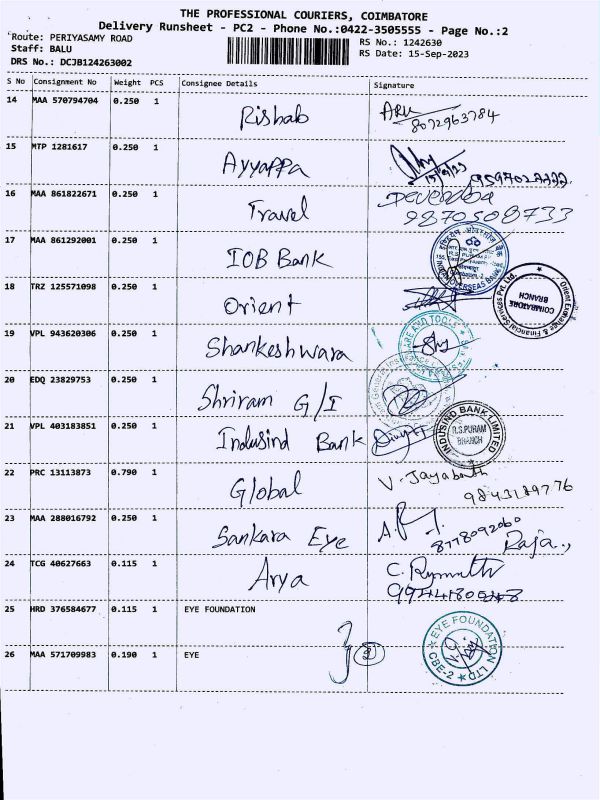 THE PROFESSIONAL COURIERS, COIMBATORE
Delivery Runsheet - PC2 - Phone No.:0422-3505555 - Page No.:2
Route: PERIYASAMY ROAD
Staff: BALU
DRS No.: DCJB124263002
RS No.: 1242630
RS Date: 15-Sep-2023
S No Consignment No Weight PCS Consignee Details Signature
14 MAA 570794704 0.250 1 Rishab ARU
8072963784
15 MTP 1281617 0.250 1 Ayyappa 15/9/23
16 MAA 861822671 0.250 1 Travel Devendra
9870508733
17 MAA 861292001 0.250 1 IOB Bank
INDIAN OVERSEAS BANK
18 TRZ 125571098 0.250 1 Orient
Orient Exchange & Financial Services Pvt. Ltd.
COIMBATORE
BRANCH
19 VPL 943620306 0.250 1 Shankeshwara
20 EDQ 23829753 0.250 1 Shriram G/I
21 VPL 403183851 0.250 1 Indusind Bank
INDUSIND BANK LIMITED
R.S.PURAM
BRANCH
22 PRC 13113873 0.790 1 Global V. Jayabnath
9843189776
23 MAA 288016792 0.250 1 Sankara Eye
8778092060
Raja.,
24 TCG 40627663 0.115 1 Arya
25 HRD 376584677 0.115 1 EYE FOUNDATION
26 MAA 571709983 0.190 1 EYE
EYE FOUNDATION LTD
CBE-2